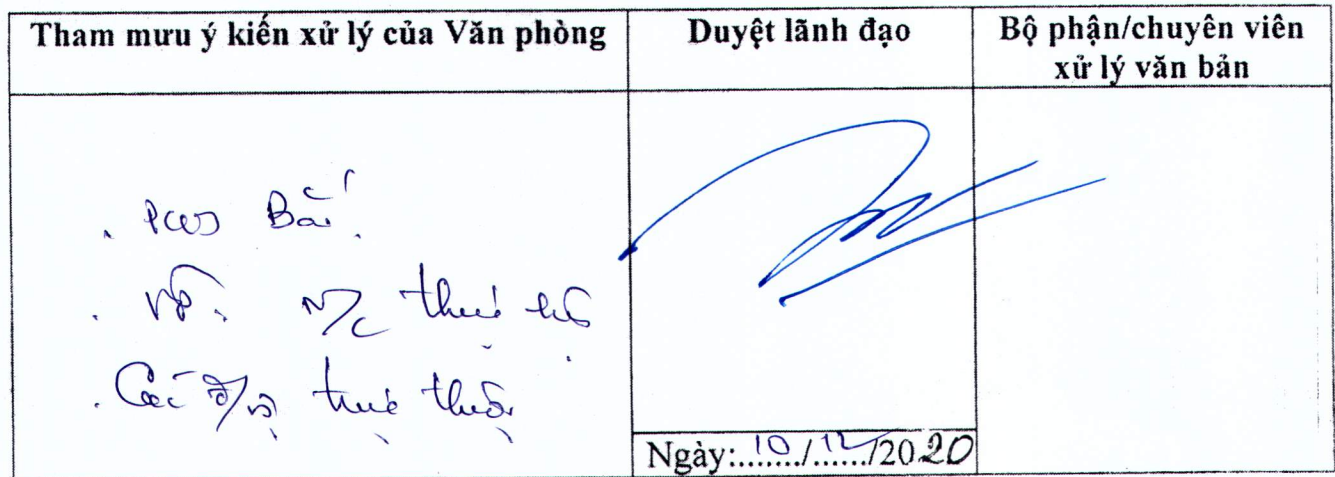 Tham mưu ý kiến xử lý của Văn phòng
Duyệt lãnh đạo
Bộ phận/chuyên viên
xử lý văn bản
. VP: N/c thực
. Các đ/vị trực thuộc
Ngày:...10.../...12.../2020